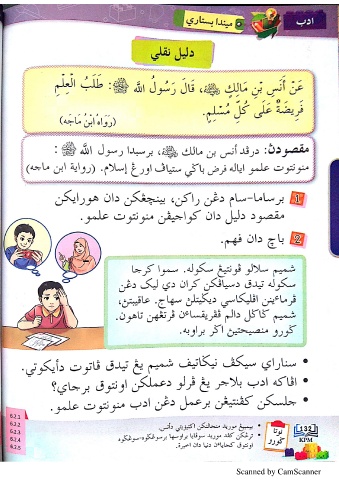 ادب
ميندا بستاري
دليل نقلي
عَنْ أَنَسِ بْنِ مَالِكٍ ﷺ، قَالَ رَسُولُ اللَّهِ ﷺ: طَلَبُ الْعِلْمِ
فَرِيضَةٌ عَلَى كُلِّ مُسْلِمٍ.
(رَوَاهُ ابْنُ مَاجَه)
مقصودن: درڤد أنس بن مالك، برسبدا رسول الله ﷺ:
منونتوت علمو اياله فرض باڬي ستياڤ اورڠ إسلام. (رواية ابن ماجه)
1 برسام-سام دڠن راكن، بينچڠكن دان هورايكن
مقصود دليل دان كواجيڤن منونتوت علمو.
2 باچ دان فهم.
شميم سلالو ڤونتيڠ سكوله. سموا كرجا
سكوله تيدق دسياڤكن كران دي ليك دڠن
ڤرماءينن اڤليكاسي ديڬيتلڽ سهاج. عاقبتڽ،
شميم ݢاݢل دالم ڤڤريقساءن ڤرتڠهن تاهون.
ݢورو منصيحتيڽ اݢر براوبه.
• سناراي سيكڤ نيݢاتيف شميم يڠ تيدق ڤاتوت دأيكوتي.
• اڤاكه ادب بلاجر يڠ ڤرلو دعملكن اونتوق برجاي؟
• جلسكن كڤنتيڠن برعمل دڠن ادب منونتوت علمو.
6.2.1
6.2.2
6.2.3
6.2.4
6.2.5
• بيمبيڠ موريد منجالنكن اكتيۏيتي دأتس.
نوتا ݢورو
132
KPM
Scanned by CamScanner